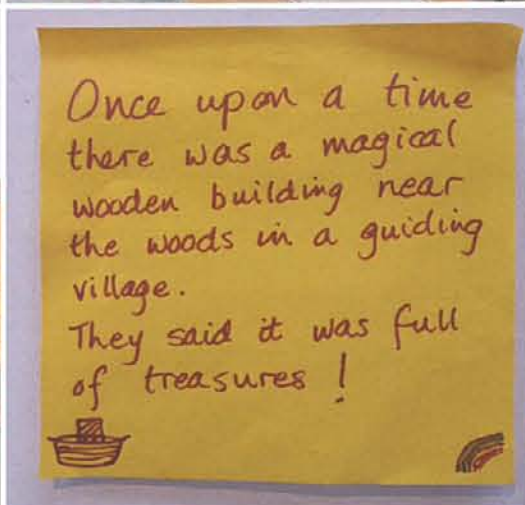 Once upon a time
there was a magical
wooden building near
the woods in a guiding
village.
They said it was full
of treasures !